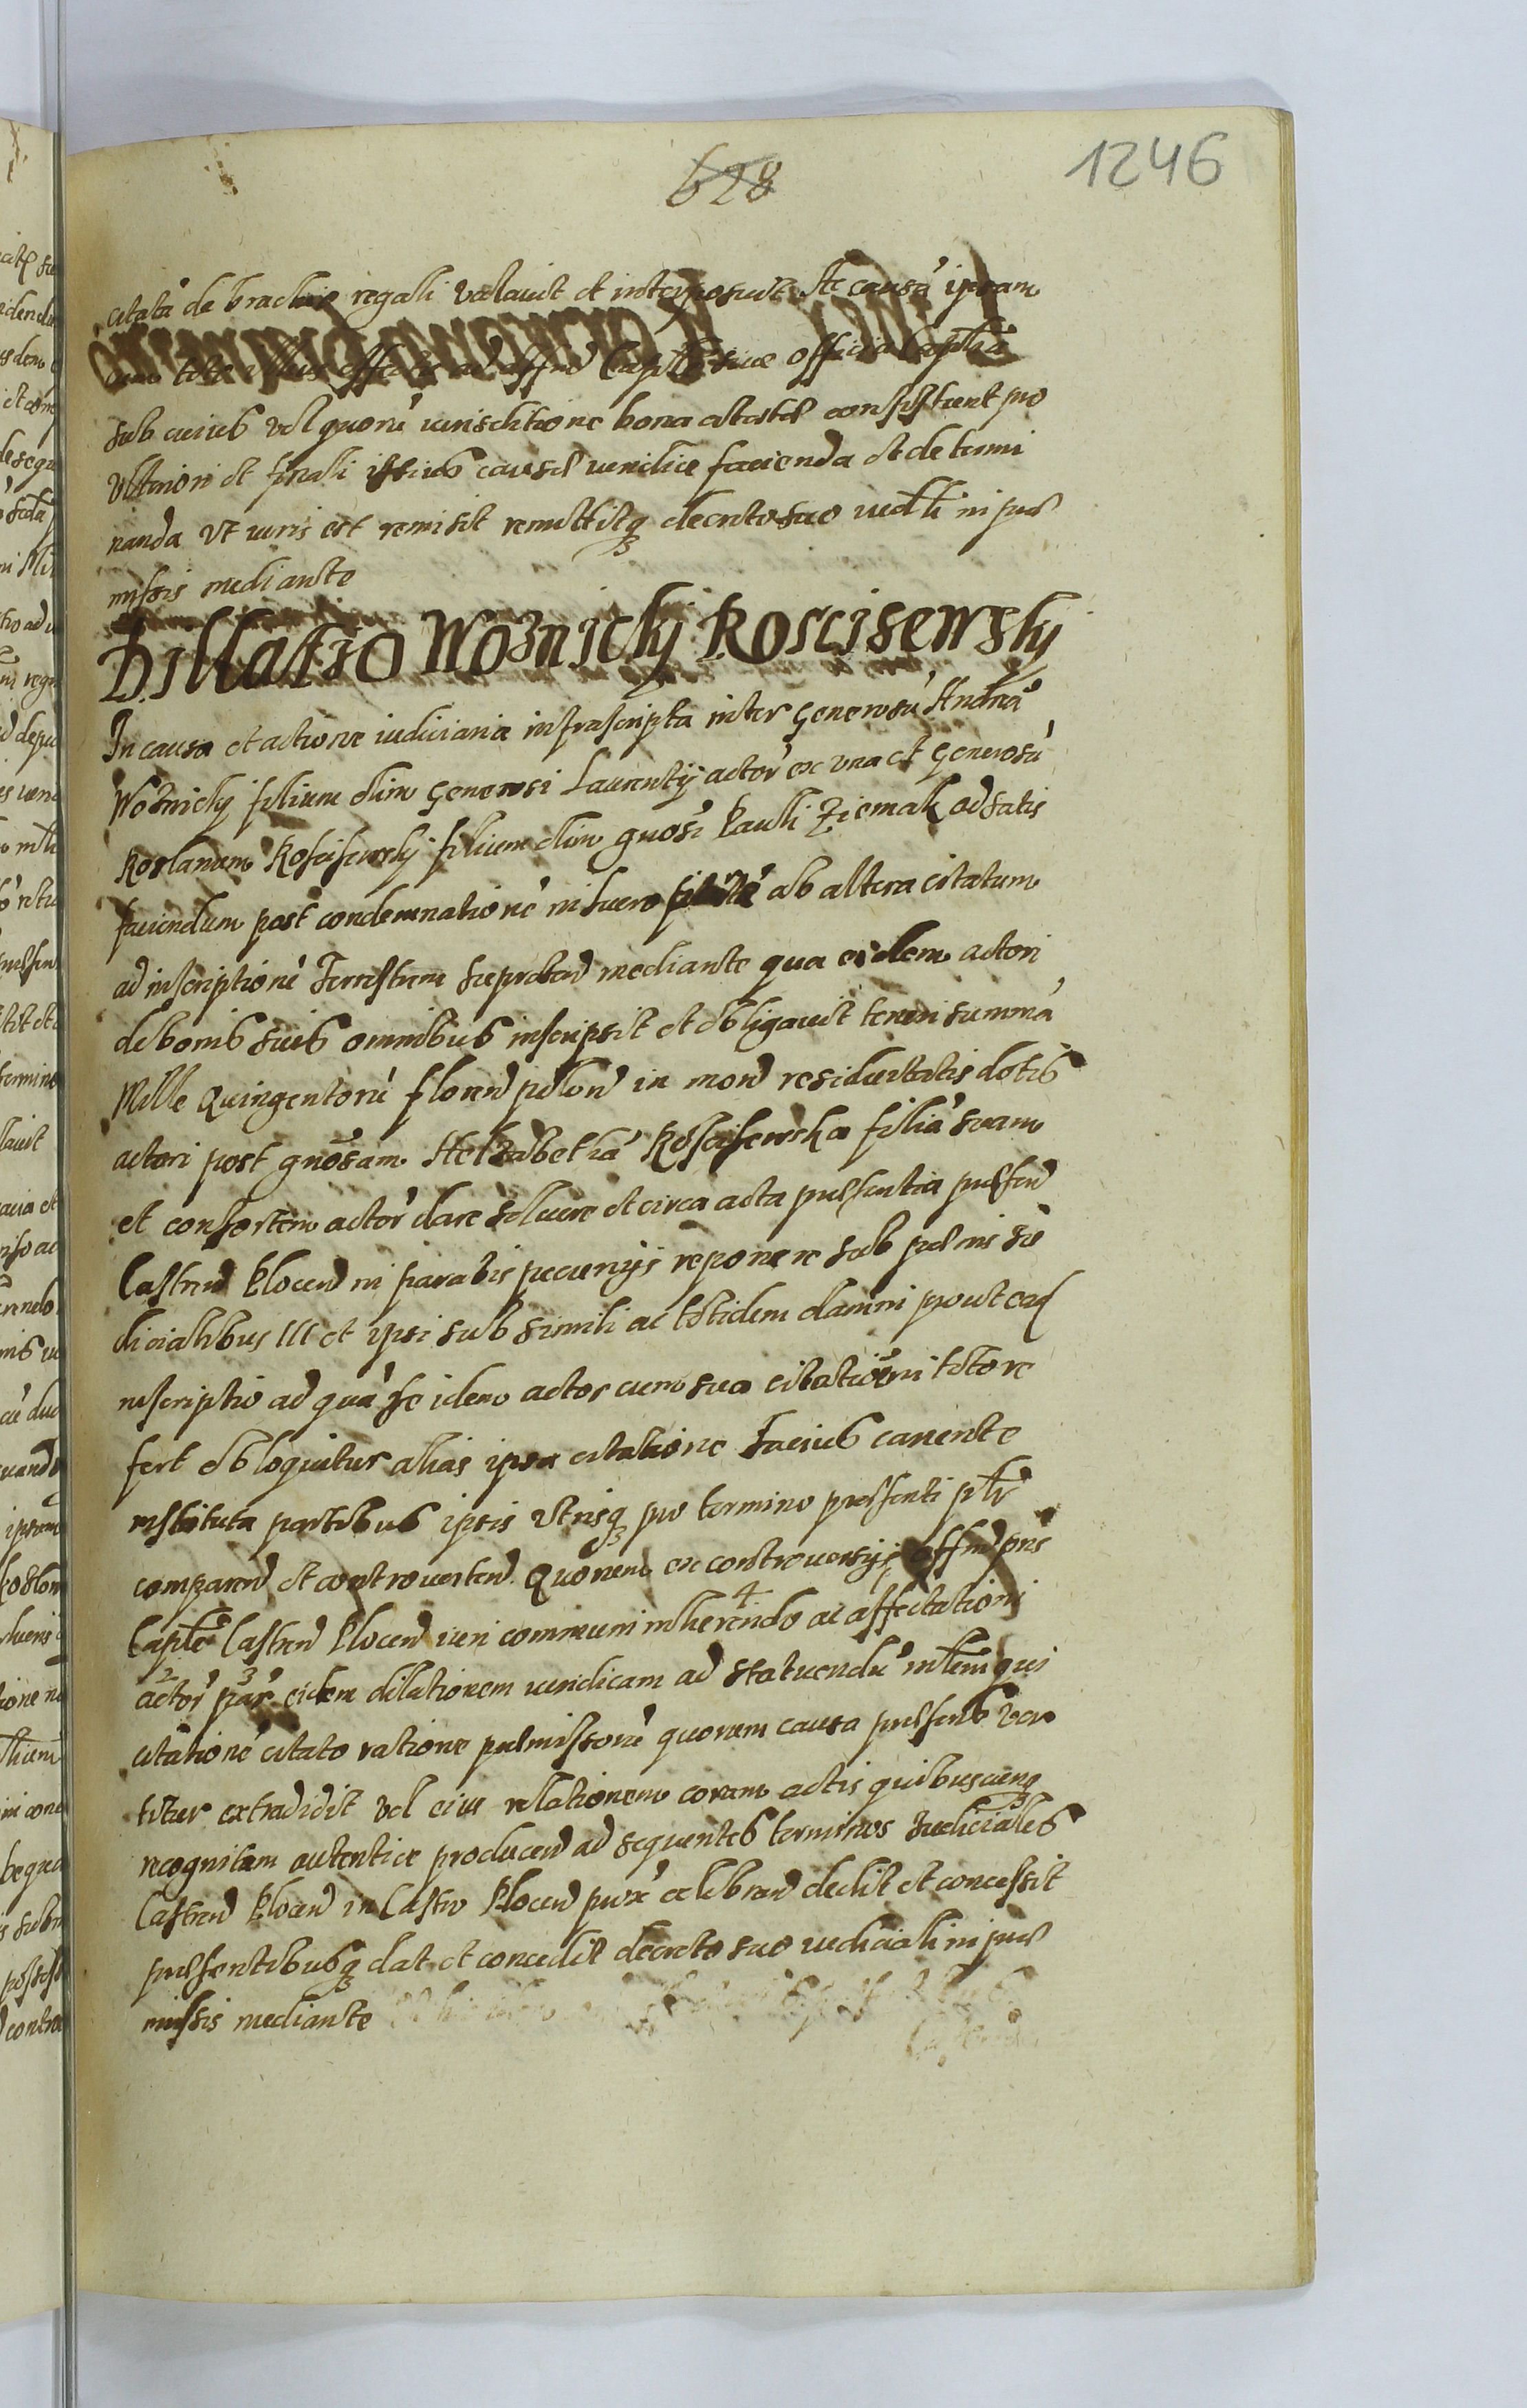 628
1246
citatā de brachio regali valavit et interposuit Ac causā ipsam
cum toto illius effectu ad offīd Capltē sive officia Capltia
sub cuius vel quorū iurisditione bona citatæ consistunt pro
Ulteriori et finali istius causæ iuridice facienda et determi
nanda Ut iuris est remisit remittitqꝫ decreto suo iudlī in præ
missis mediante
Dillatio Woznicky Roscisewsky
In causa et actione iudiciaria infrascripta inter Generosū Andreā
Woznicky filium olim Generosi Laurentij actorē ex una et Generosū
Roslanum Roscisewsky filium olim gnosi Pauli Ziemak ad satis
faciendum post condemnationē in suero ab altera citatum
ad inscriptionē Terrestrem Sieprcēn mediante qua eidem actori
de bonis suis omnibus inscripsit et obligavit teneri summā
Mille Quingentorū florēn polon in monē residuitatis dotis
actori post gnosam Helzabethā Roscisewska filiā suam
et consortem actorē dare solvere et circa acta præsentia præsen
Castren Plocen in paratis pecunijs reponere sub pænis iu
dicialibus III et ipsi sub simili ac totidem damni prout eadē
inscriptio ad quā se idem actor cum sua citatione in toto re
fert obloquitur alias ipsa citatione Lacius canente
instituta partibus ipsis Utrisqꝫ pro termino præsenti pltr
comparen et controverten Quorum ex controversijs offm prns
Caple Castren Plocen iuri communi inherendo ac affectationi
4
2 3
actorē par eidem dilationem iuridicam ad statuendū mlem qui
citationē citato ratione præmissorū quorum causa præsens ver
titur extradidit vel eius relationem coram actis quibuscunqꝫ
recognitam autentice producen ad sequentes terminos iudiciales
Castren Plocen in Castro Plocen prox celebran dedit et concessit
præsentibusqꝫ dat et concedit decreto suo iudiciali in præ
missis mediante